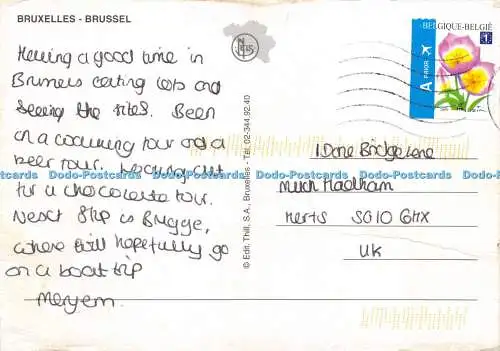 BRUXELLES - BRUSSEL
Having a good time in
Brussels eating lots and
seeing the sites. Been
on a walking tour and a
beer tour. Looking out
for a chocolate tour.
Next stop is Brugge,
where will hopefully go
on a boat trip
Meryem.
© Edit. Thill, S.A., Bruxelles - Tél. 02-344.92.40
BELGIQUE-BELGIË
A PRIOR
1
1 Dane Bridge Lane
Much Hadham
Herts SG10 6HX
UK
Dodo-Postcards Dodo-Postcards Dodo-Postcards Dodo-Postcards Dodo-Postcards Dodo-Postcards